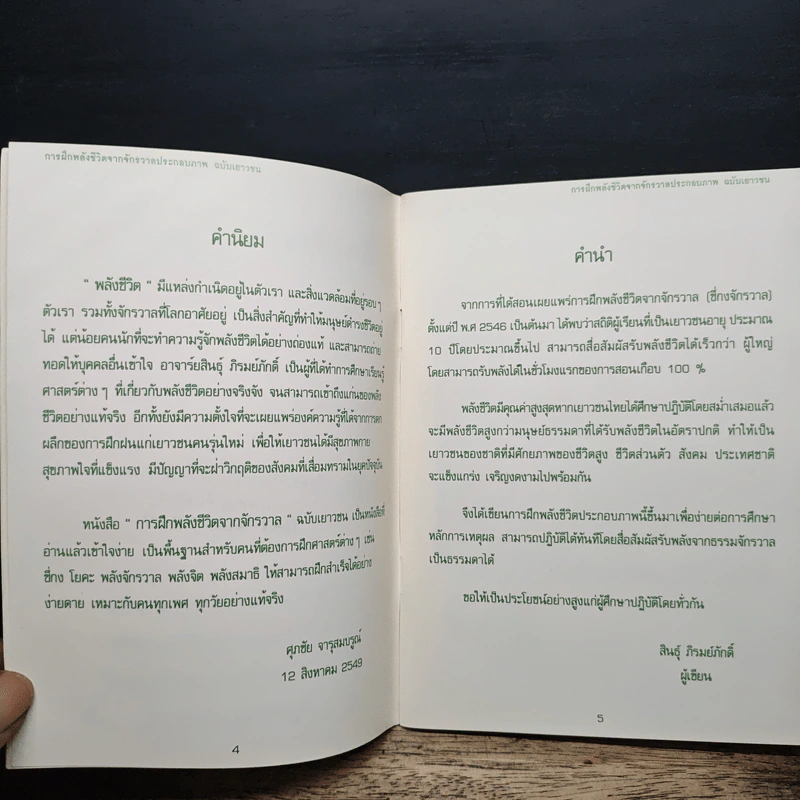 การฝึกพลังชีวิตจากจักรวาลประกอบภาพ ฉบับเยาวชน
คำนิยม
" พลังชีวิต " มีแหล่งกำเนิดอยู่ในตัวเรา และสิ่งแวดล้อมที่อยู่รอบๆ
ตัวเรา รวมทั้งจักรวาลที่โลกอาศัยอยู่ เป็นสิ่งสำคัญที่ทำให้มนุษย์ดำรงชีวิตอยู่
ได้ แต่น้อยคนนักที่จะทำความรู้จักพลังชีวิตได้อย่างถ่องแท้ และสามารถถ่าย
ทอดให้บุคคลอื่นเข้าใจ อาจารย์สินธุ์ ภิรมย์ภักดิ์ เป็นผู้ที่ได้ทำการศึกษาเรียนรู้
ศาสตร์ต่างๆ ที่เกี่ยวกับพลังชีวิตอย่างจริงจัง จนสามารถเข้าถึงแก่นของพลัง
ชีวิตอย่างแท้จริง อีกทั้งยังมีความตั้งใจที่จะเผยแพร่องค์ความรู้ที่ได้จากการตก
ผลึกของการฝึกฝนแก่เยาวชนคนรุ่นใหม่ เพื่อให้เยาวชนได้มีสุขภาพกาย
สุขภาพใจที่แข็งแรง มีปัญญาที่จะฝ่าวิกฤติของสังคมที่เสื่อมทรามในยุคปัจจุบัน
หนังสือ " การฝึกพลังชีวิตจากจักรวาล " ฉบับเยาวชน เป็นหนังสือที่
อ่านแล้วเข้าใจง่าย เป็นพื้นฐานสำหรับคนที่ต้องการฝึกศาสตร์ต่างๆ เช่น
ชี่กง โยคะ พลังจักรวาล พลังจิต พลังสมาธิ ให้สามารถฝึกสำเร็จได้อย่าง
ง่ายดาย เหมาะกับคนทุกเพศ ทุกวัยอย่างแท้จริง
ศุภชัย จารุสมบูรณ์
12 สิงหาคม 2549
4
การฝึกพลังชีวิตจากจักรวาลประกอบภาพ ฉบับเยาวชน
คำนำ
จากการที่ได้สอนเผยแพร่การฝึกพลังชีวิตจากจักรวาล (ชี่กงจักรวาล)
ตั้งแต่ปี พ.ศ 2546 เป็นต้นมา ได้พบว่าสถิติผู้เรียนที่เป็นเยาวชนอายุ ประมาณ
10 ปีโดยประมาณขึ้นไป สามารถสื่อสัมผัสรับพลังชีวิตได้เร็วกว่า ผู้ใหญ่
โดยสามารถรับพลังได้ในชั่วโมงแรกของการสอนเกือบ 100 %
พลังชีวิตมีคุณค่าสูงสุดหากเยาวชนไทยได้ศึกษาปฏิบัติโดยสม่ำเสมอแล้ว
จะมีพลังชีวิตสูงกว่ามนุษย์ธรรมดาที่ได้รับพลังชีวิตในอัตราปกติ ทำให้เป็น
เยาวชนของชาติที่มีศักยภาพของชีวิตสูง ชีวิตส่วนตัว สังคม ประเทศชาติ
จะแข็งแกร่ง เจริญงดงามไปพร้อมกัน
จึงได้เขียนการฝึกพลังชีวิตประกอบภาพนี้ขึ้นมาเพื่อง่ายต่อการศึกษา
หลักการเหตุผล สามารถปฏิบัติได้ทันทีโดยสื่อสัมผัสรับพลังจากธรรมจักรวาล
เป็นธรรมดาได้
ขอให้เป็นประโยชน์อย่างสูงแก่ผู้ศึกษาปฏิบัติโดยทั่วกัน
สินธุ์ ภิรมย์ภักดิ์
ผู้เขียน
5